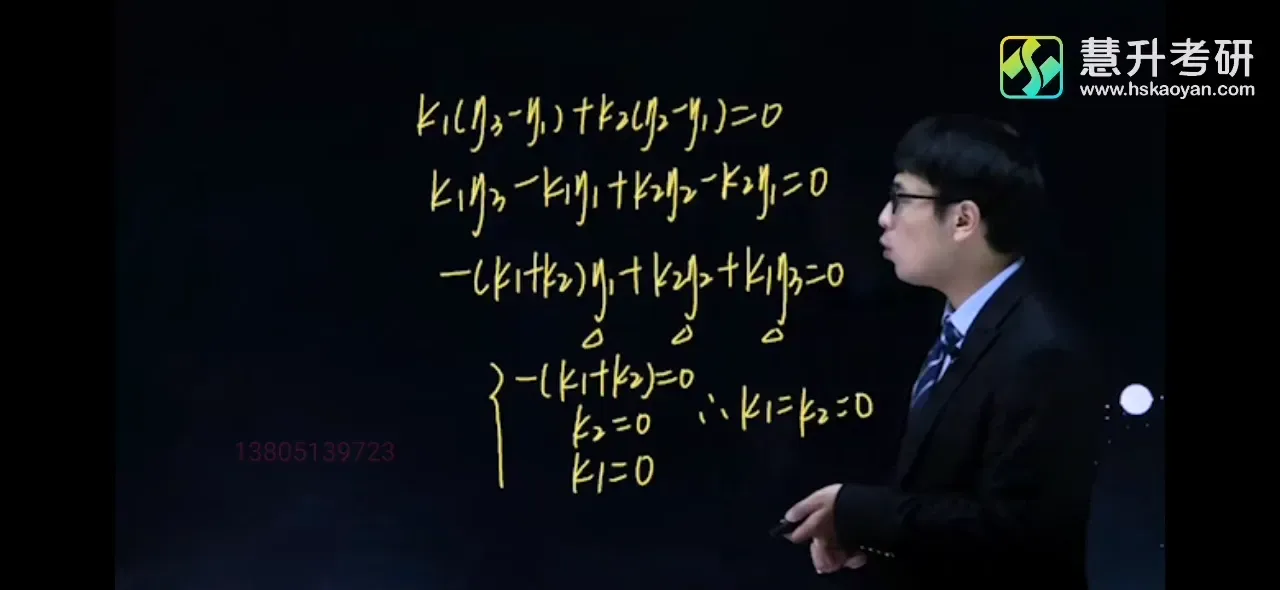 慧升考研
www.hskaoyan.com
k₁(η₃-η₁)+k₂(η₂-η₁)=0
k₁η₃-k₁η₁+k₂η₂-k₂η₁=0
-(k₁+k₂)η₁+k₂η₂+k₁η₃=0
-(k₁+k₂)=0
k₂=0 ∴k₁=k₂=0
k₁=0
13805139723